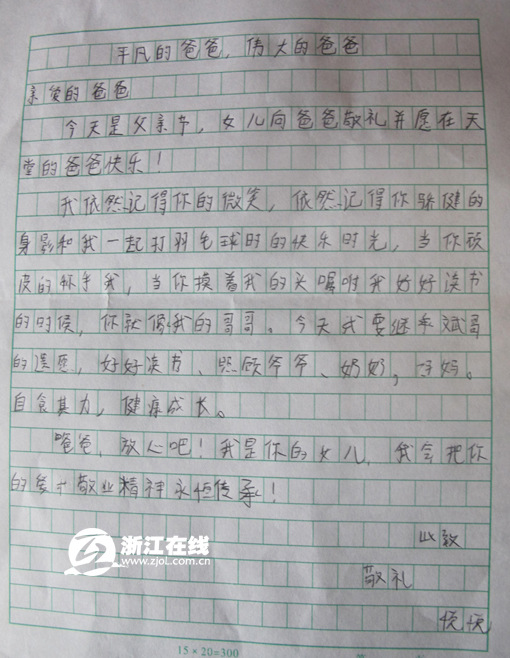 平凡的爸爸，伟大的爸爸
亲爱的爸爸
今天是父亲节，女儿向爸爸敬礼并愿在天
堂的爸爸快乐！
我依然记得你的微笑，依然记得你矫健的
身影和我一起打羽毛球时的快乐时光，当你顽
皮的怀手我，当你摸着我的头嘱咐我好好读书
的时候，你就像我的哥哥。今天我要继承斌哥
的遗愿，好好读书、照顾爷爷、奶奶，妈妈。
自食其力，健康成长。
爸爸，放心吧！我是你的女儿，我会把你
的爱 敬业精神永恒传承！
此致
敬礼
悦悦
浙江在线
www.zjol.com.cn
15×20=300